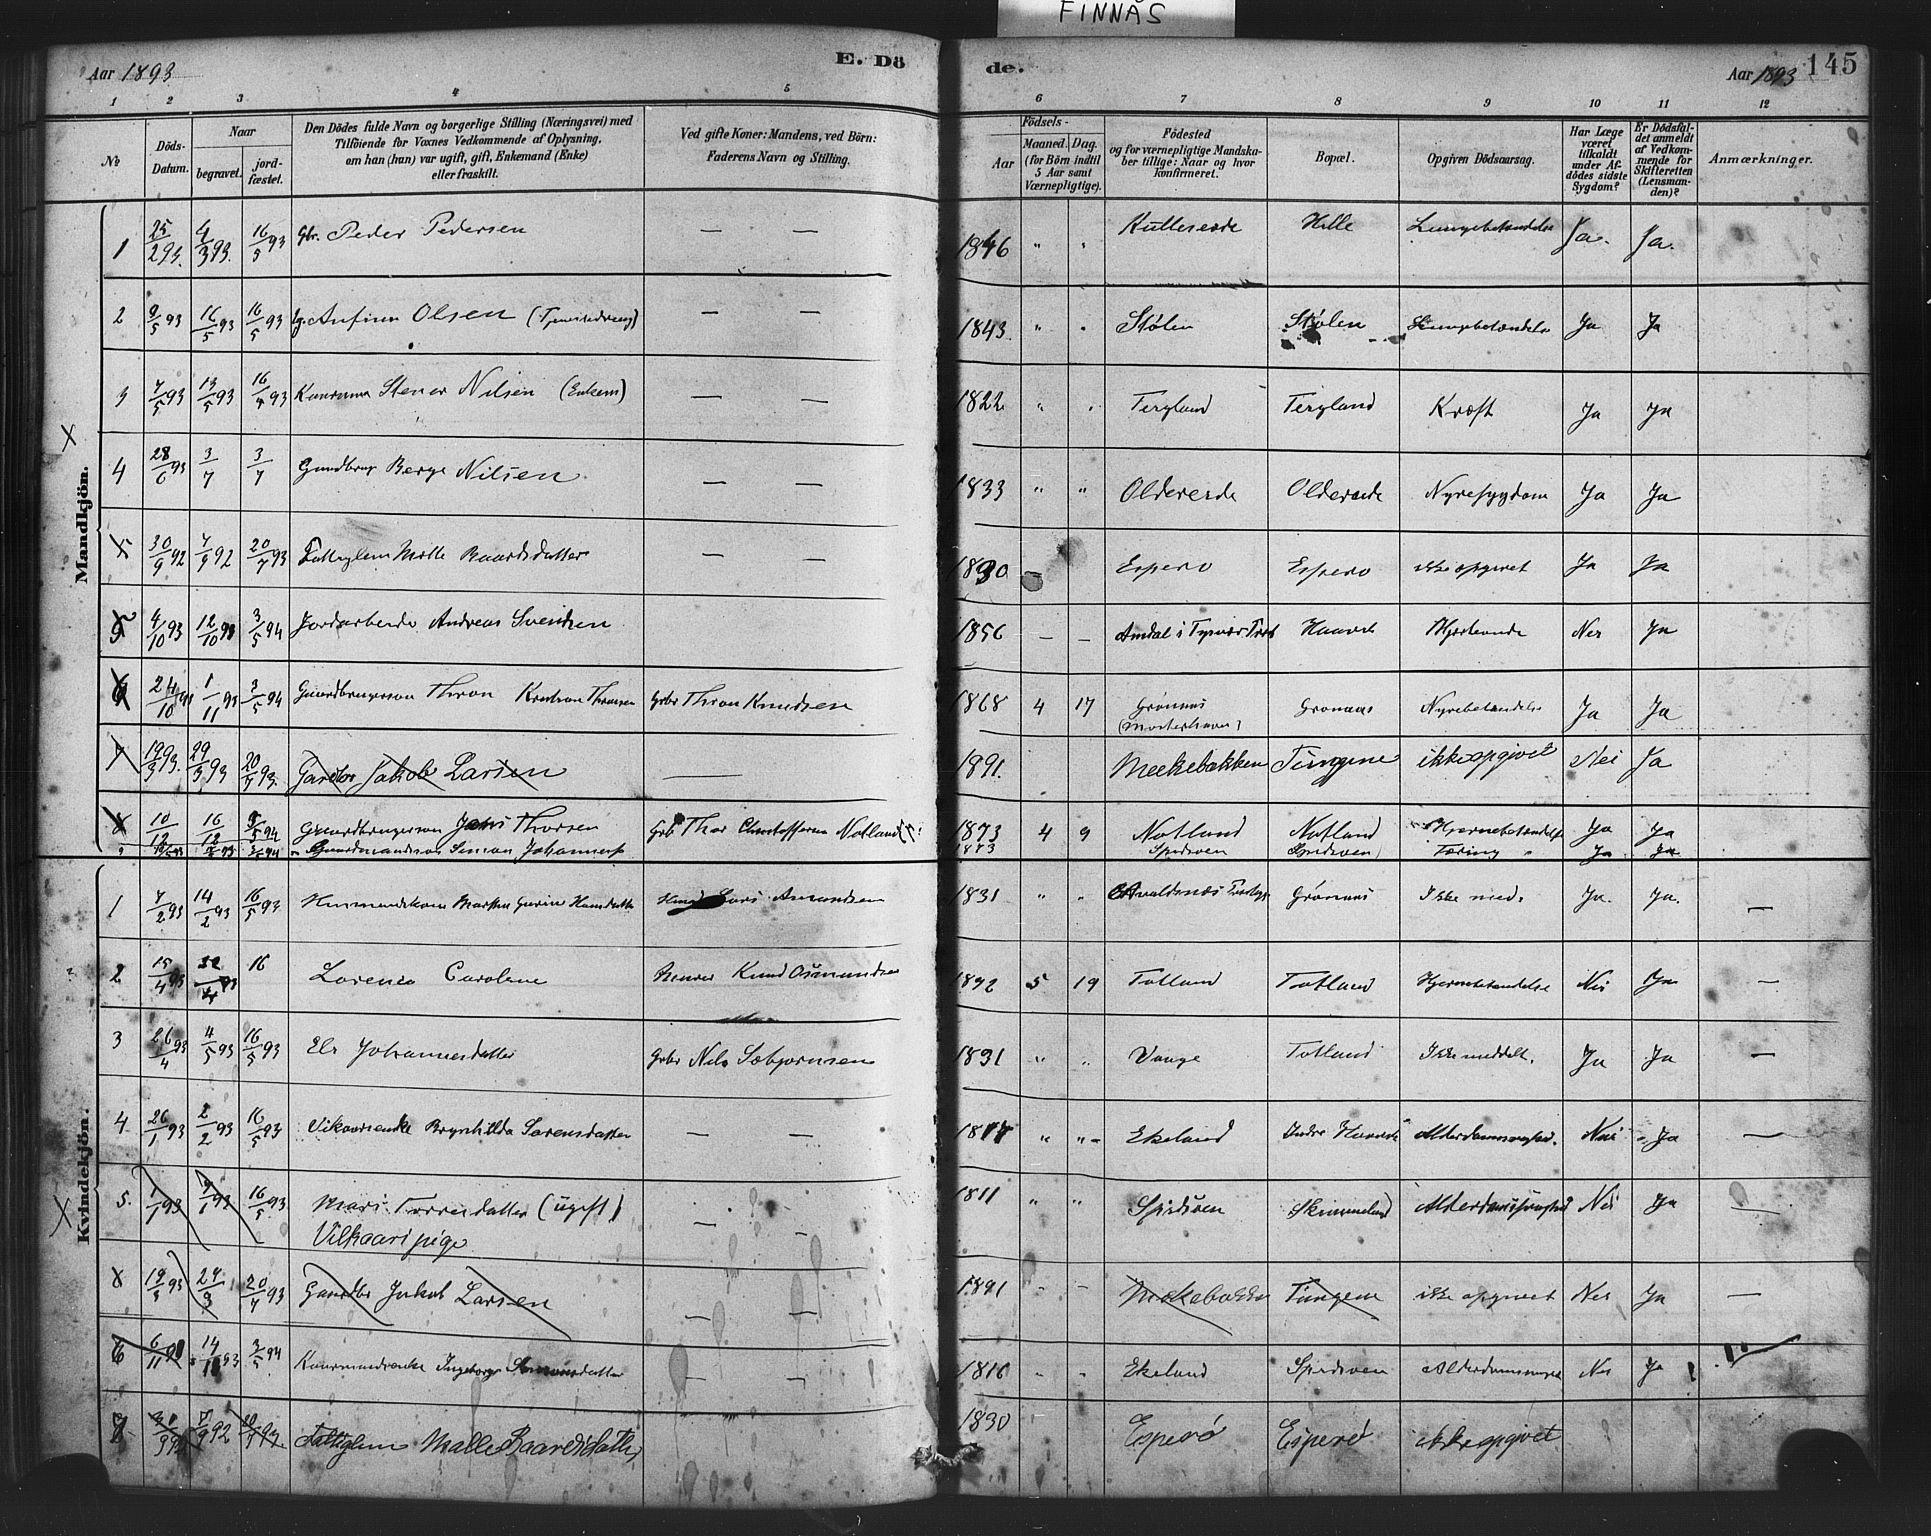 FINNÅS
Aar 1893 E. Dö de. Aar 1893 145
1 2 3 4 5 6 7 8 9 10 11 12
No
Döds-Datum.
Naar
begravet.
jord-fæstet.
Den Dödes fulde Navn og borgerlige Stilling (Næringsvei) med
Tilföiende for Voxnes Vedkommende af Oplysning,
om han (hun) var ugift, gift, Enkemand (Enke)
eller fraskilt.
Ved gifte Koner: Mandens, ved Börn:
Faderens Navn og Stilling.
Födsels-
Aar
Maaned. Dag.
(for Börn indtil
5 Aar samt
Værnepligtige).
Födested
og for værnepligtige Mandska-
ber tillige: Naar og hvor
konfirmeret.
Bopæl.
Opgiven Dödsaarsag.
Har Læge
været
tilkaldt
under Af-
dödes sidste
Sygdom?
Er Dödsfal-
det anmeldt
af Vedkom-
mende for
Skifteretten
(Lensman-
den)?
Anmærkninger.
Mandkjön.
1 25/2 93. 4/3 93. 16/5 93 Gbr. Peder Pedersen — — 1846 " " Kulleseide Hille Lungebetændelse Ja. Ja.
2 9/5 93 16/5 93 16/5 93 Ug. Anfinn Olsen — — 1843. " " Stølen Stølen Lungebetændelse Ja Ja
3 7/5 93 13/5 93 16/5 93 Stener Nilsen (Enkem) — — 1822 " " Tergland Tergland Kræft Ja Ja
4 28/6 93 3/7 3/7 Gaardbrug Berge Nilsen — — 1833 " " Oldereide Oldereide Nyresygdom Ja Ja
5 30/9 92 7/9 92 20/7 93 Fattiglem Malle Baardsdatter — — 1830 — Esperø Esperø ikke opgivet Ja Ja
5 4/10 93 12/10 93 3/5 94 Jordarbeide Andreas Svendsen 1856 — — Amdal i Tysvær Haavik Nei Ja
6 24/10 93 1/11 93 3/5 94 Gaardbrugerson Thron Gbr Thron Knudsen 1868 4 17 Grønnæs Grønnæs Nyrebetændelse Ja Ja
(Mosterhavn)
7 19/3 93. 29/3 93 20/7 93. Gardbr Jakob Larsen — 1891. Meekebakken Tungene ikke opgivet Nei Ja
8 10/12 16/12 3/5 94 Gaardbrugerson Jens Thorsen Gbr Thor Christoffersen Notland 1873 4 9 Notland Notland Hjernebetændelse Ja Ja
Gaardmandsøn Simon Johannes 1873 Spidsøen Spidsøen Tæring " Ja Ja
Kvindekjön.
1 7/2 93 14/2 93 16/5 93 Husmandskone Martha Gurine Hansdatter Lars Amundsen 1831 " " Grønnæs Ikke med. Ja. Ja. —
2 15/4 93 16 Lorence Caroline Knud Osmundsen 1892 5 19 Totland Totland Hjernebetændelse Nei Ja —
3 26/4 93 4/5 93 16/5 93 Els Johannesdatter Gbr Nils Sæbjørnsen 1831 " " Vaage Totland Ikke meddelt. Ja Ja —
4 26/1 93 2/2 93 16/5 93 Vilkaarsenke Brynhilda Sørensdatter — — " " Ekeland Indre Haavik Alderdomssvaghed. Nei Ja —
5. 1/1 93 9/1 93 16/5 93 Mari Torresdatter (ugift) — — 1811 " " Spidsøen Skimmeland Alderdomssvaghed Nei Ja —
Vilkaarspige
19/3 93 29/3 20/7 93 Gaardbr Jakob Larsen — — 1891 " " Mekebakken Tungene ikke opgivet Nei Ja —
6 6/11 93 14/11 93 3/5 94 Ingeborg — — 1816 " " Ekeland Spidsøen Alderdomssvaghed Nei Ja
7/9 92 20/7 93. Fattiglem Malle Baardsdatter 1830 Esperø Esperø ikke opgivet